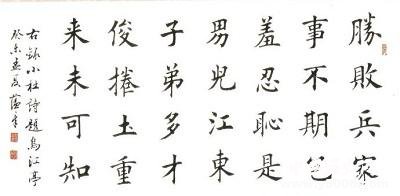 勝敗兵家
事不期包
羞忍恥是
男兒江東
子弟多才
俊捲土重
来未可知
右錄小杜詩題烏江亭
癸未孟夏